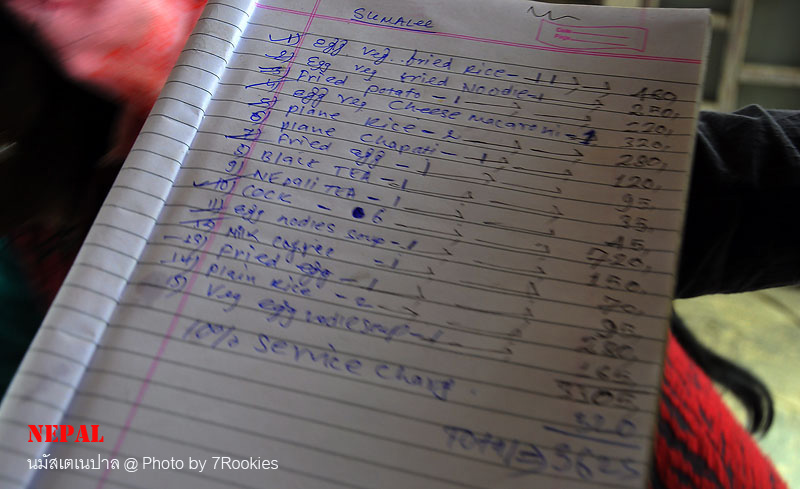 SUMALEE
Date
Page
1) egg veg. fried Rice - 11 → 460
2) Egg veg fried Noodle-1 → 250,
3) Fried potato - 1 → 220,
4) egg veg Cheese macaroni - 1 → 320,
5) plane Rice - 2 → 280,
6) plane chapati - 1 → 120,
7) fried egg - 1 → 95
8) Black TEA - 1 → 35,
9) NEpali TEA - 1 → 45,
10) COCK - 6 → 720,
11) egg nodies soup - 1 → 150
12) Milk coffee - 1 → 70,
13) fried egg - 1 → 95
14) plain Rice - 2 → 280
15) veg egg nodiesoup - 1 → 165
3305
10% service charg. 320
Total → 3625
NEPAL
นมัสเตเนปาล @ Photo by 7Rookies